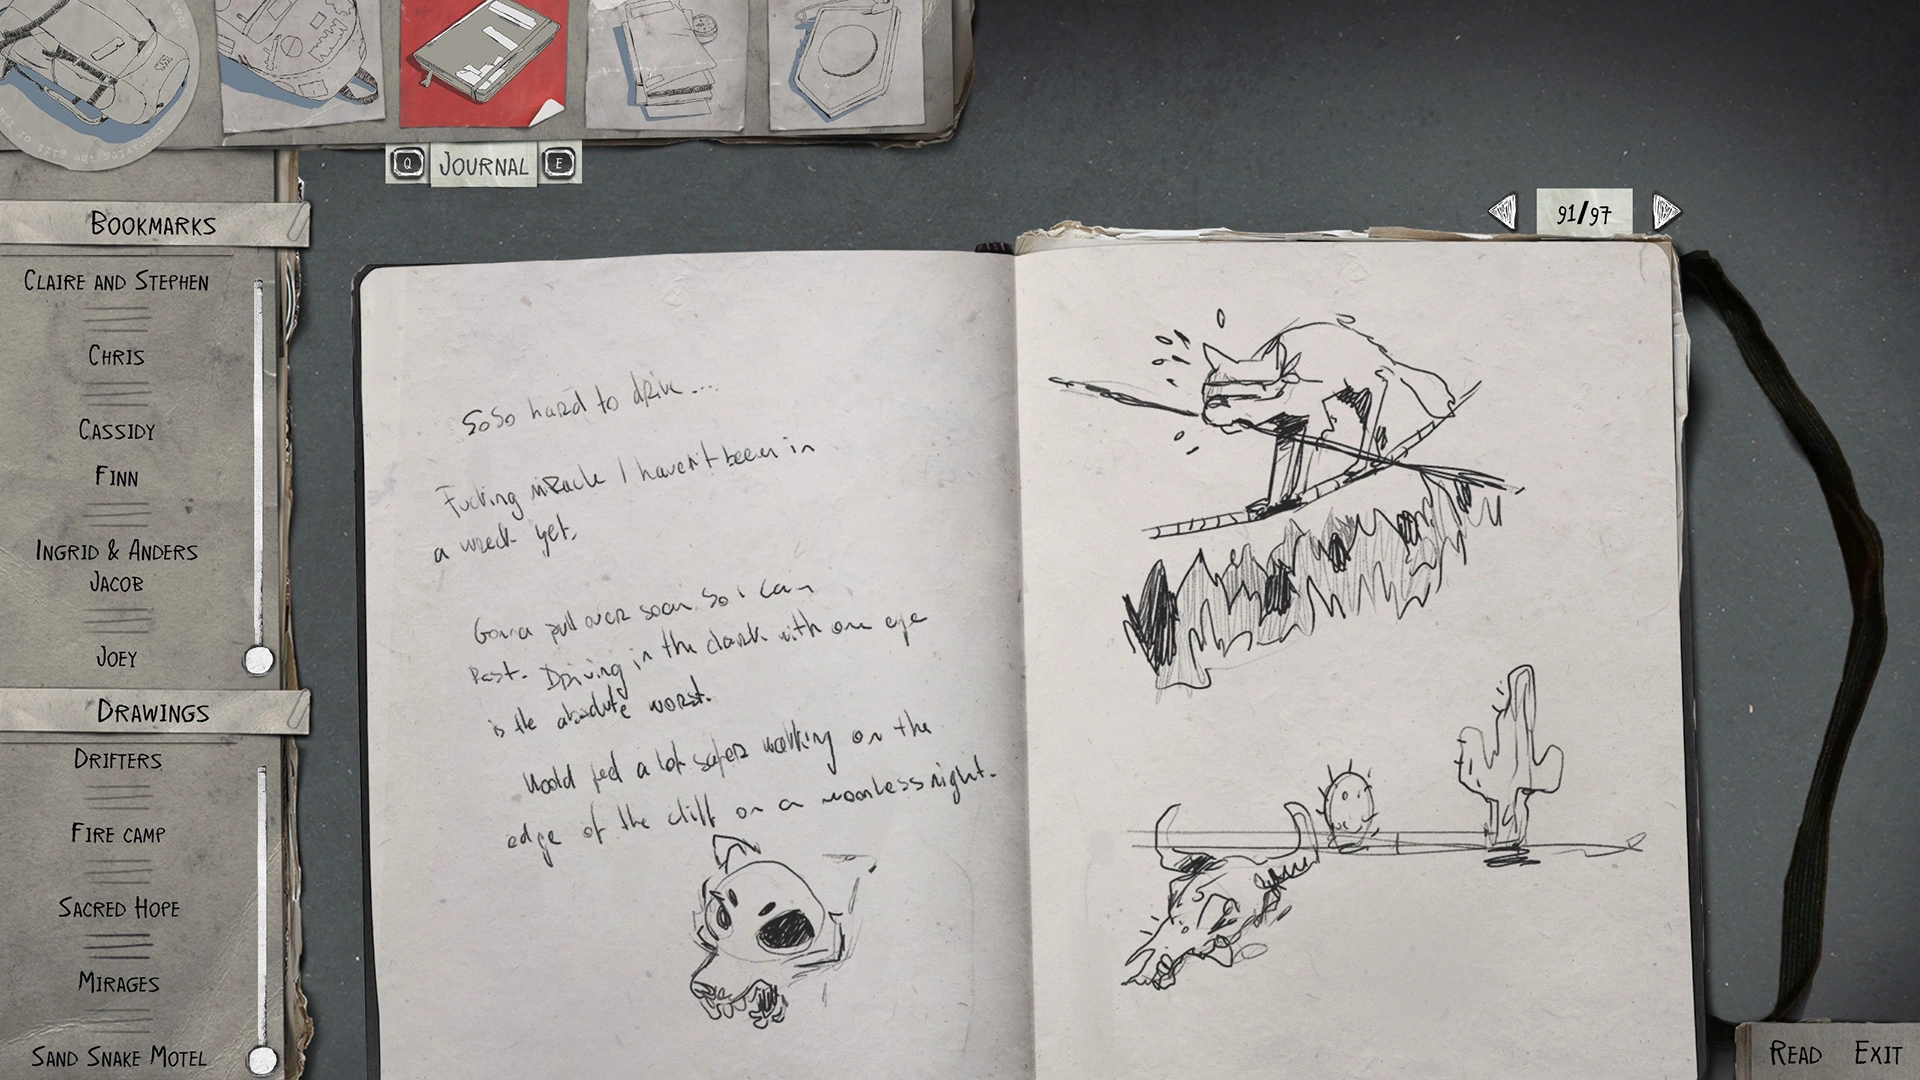 JOURNAL
Q
E
BOOKMARKS
CLAIRE AND STEPHEN
CHRIS
CASSIDY
FINN
INGRID & ANDERS
JACOB
JOEY
DRAWINGS
DRIFTERS
FIRE CAMP
SACRED HOPE
MIRAGES
SAND SNAKE MOTEL
91/97
SoSo hard to drive...
Fucking miracle I haven't been in
a wreck yet.
Gonna pull over soon so i can
Rest. Driving in the dark with one eye
is the absolute worst.
Would feel a lot safer walking on the
edge of the cliff on a moonless night.
READ
EXIT